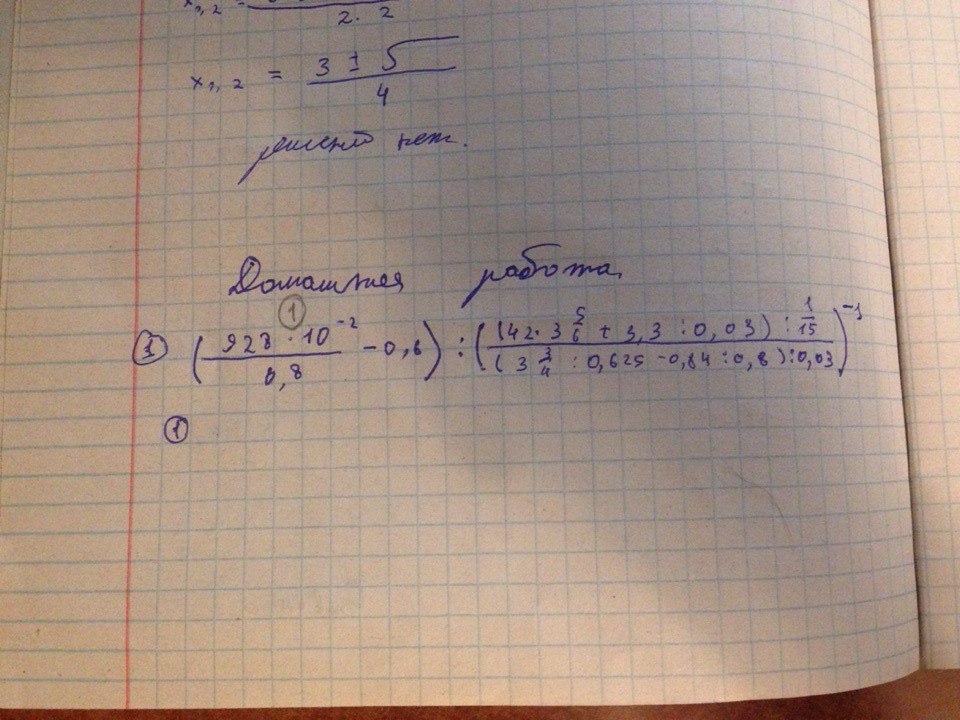 x₁,₂ =
2 · 2
x₁,₂ = (3 ± 5√)/4
решений нет.
Домашняя работа.
①
① (928 · 10⁻²/0,8 − 0,6) : ((42 · 3 5/6 + 3,3 : 0,03) : 1/15 / (3 3/4 : 0,625 − 0,84 : 0,8) : 0,03)⁻¹
①